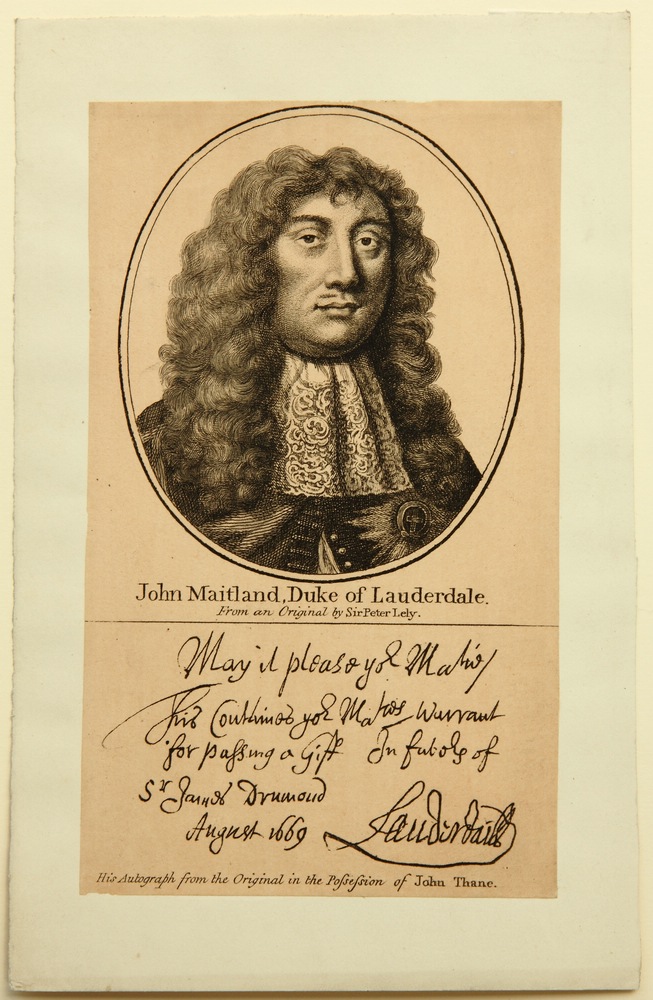 John Maitland, Duke of Lauderdale.
From an Original by Sir Peter Lely.
May it please yor Maties
This Conteines yor Maties Warrant
for passing a Gift In favors of
Sr James Drumond
August 1669 Lauderdaill
His Autograph from the Original in the Poſseſsion of John Thane.